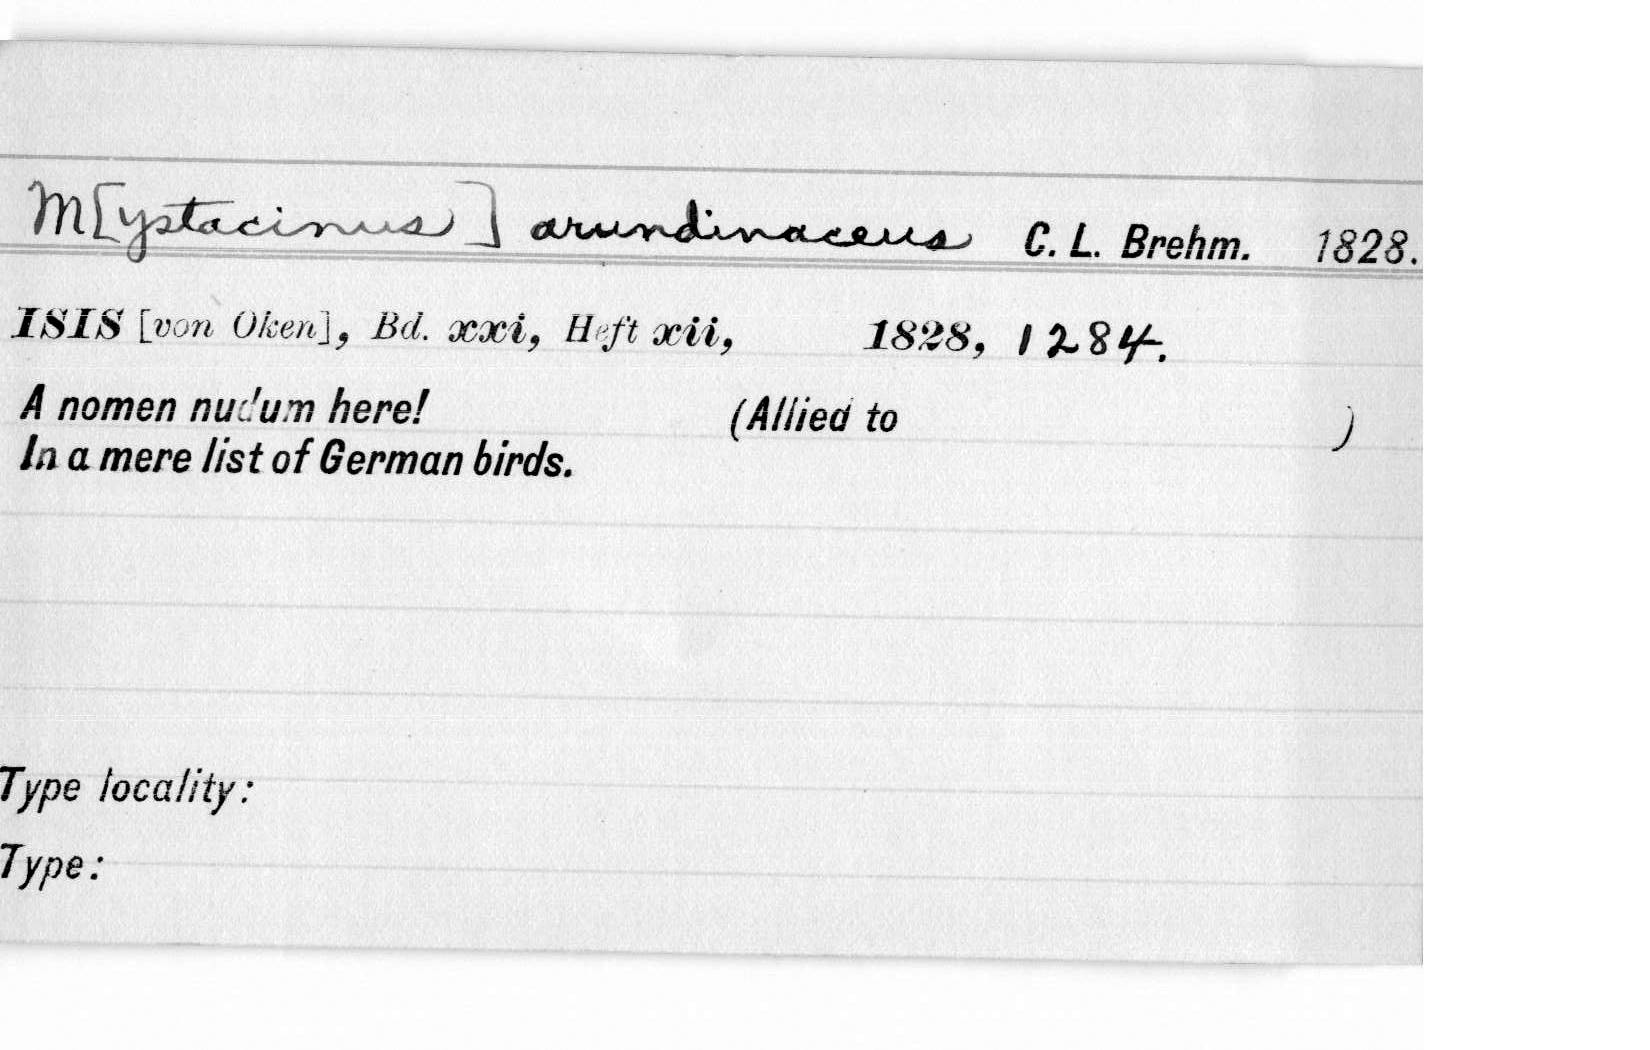 M[ystacinus] arundinaceus C. L. Brehm. 1828.
ISIS [von Oken], Bd. xxi, Heft xii, 1828, 1284.
A nomen nudum here! (Allied to )
In a mere list of German birds.
Type locality:
Type: